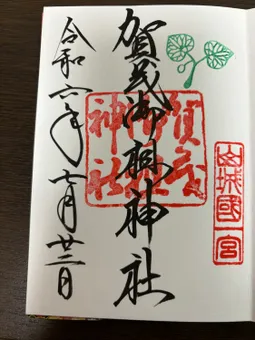 山城國一宮
賀茂御祖神社
賀茂御祖神社
令和六年七月廿二日